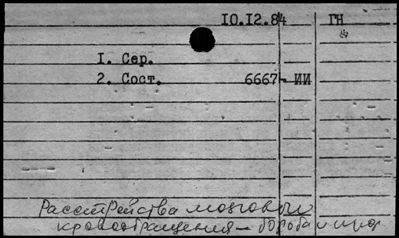 10.12.84 ГН
1. Сер.
2. Сост. 6667 - ИИ
Расстройства мозговых
кровообращения —